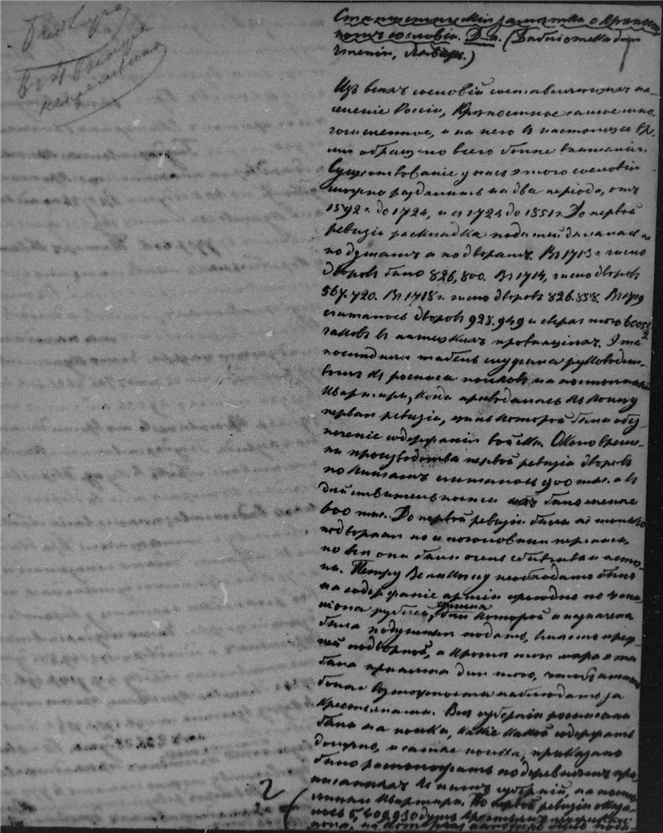 Статистическiя замѣтка о крѣпост
номъ сословiи. Д-а. (Библiотека для
чтенiя, Январь.)
Изъ всѣхъ сословiй составляющихъ на-
селенiе Россiи, крѣпостное самое мно-
гочисленное, а на него въ настоящее вре-
мя обращено всего болѣе вниманiя.
Существованiе у насъ этого сословiя
можно раздѣлить на два перiода, отъ
1592 г. до 1724, и съ 1724 до 1851 г. До первой
ревизiи раскладка податей дѣлалась не
по душамъ а по дворамъ. Въ 1713 г. число
дворовъ было 826,800. Въ 1714, число дворовъ
567.720. Въ 1718 г. число дворовъ 826.858. Въ 1719
считалось дворовъ 928.949 и сверхъ того
гаковъ въ провинцiяхъ. Эта
послѣдняя табель служила руководи-
вомъ къ росписи полковъ на
квартиры, когда приводилась къ концу
первая ревизiя, цѣль которой была обез
печенiе содержанiя войска. Около време-
ни производства первой ревизiи дворовъ
по книгамъ считалось 900 тыс. а въ
дѣйствительности ихъ было менѣе
600 тыс. До первой ревизiи были не только
подворныя но и поголовныя переписи,
но всѣ они были очень сбивчивы и
Петру Великому необходимо было
на содержанiе армiи ежегодно по 4 мил
лiона рублей, для которой и назначена
была подушная подать, вмѣсто преж
ней подворной, а кромѣ того мѣра эта
была принята для того, чтобъ имѣть
болѣе возможности наблюдать за
крестьянами. Всѣ губернiи росписаны
были на полки, какiе какой содержать
должно, и самые полки, приказано
было расположить по деревнямъ при-
писанныхъ къ нимъ губернiй, на
квартиры. По первой ревизiи оказа
лось 5,409,930 душъ
2